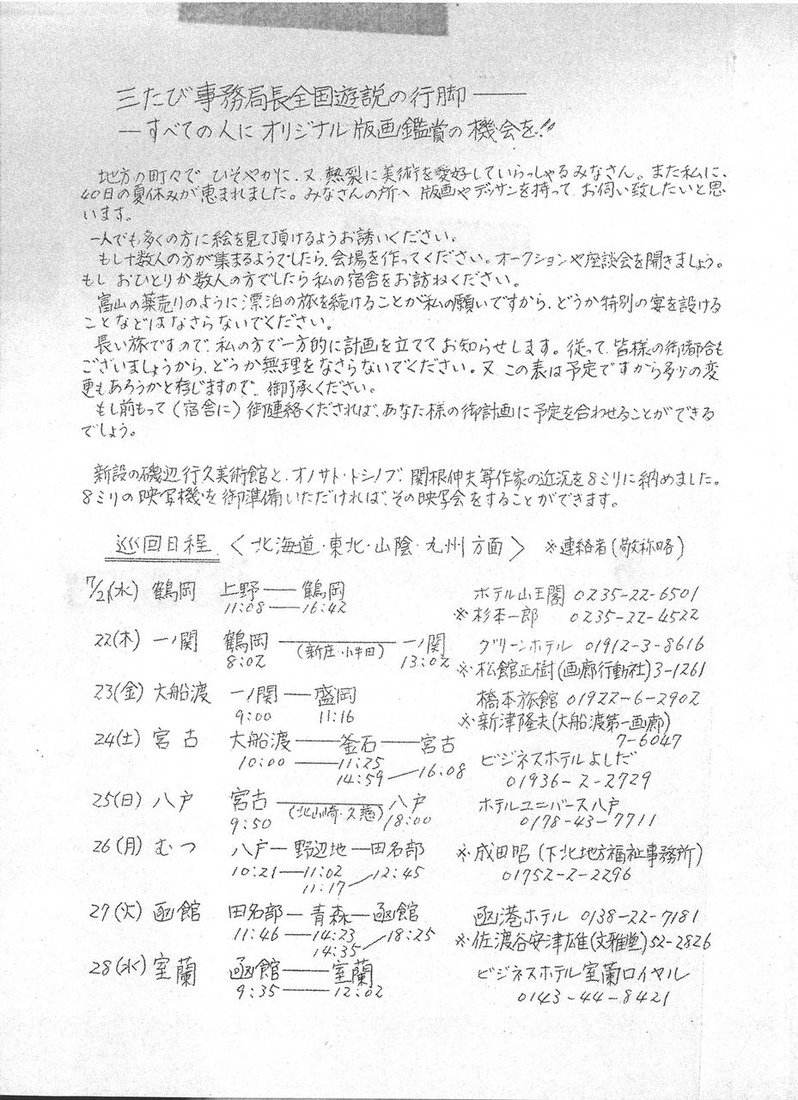 三たび事務局長全国遊説の行脚——
—すべての人にオリジナル版画鑑賞の機会を!!
地方の町々でひそやかに、又、熱裂に美術を愛好していらっしゃるみなさん。また私に、
40日の夏休みが恵まれました。みなさんの所へ版画やデッサンを持ってお伺い致したいと思
います。
一人でも多くの方に絵を見て頂けるようお誘いください。
もし十数人の方が集まるようでしたら、会場を作ってください。オークションや座談会を開きましょう。
もしおひとりか数人の方でしたら私の宿舎をお訪ねください。
富山の薬売りのように漂泊の旅を続けることが私の願いですから、どうか特別の宴を設ける
ことなどはなさらないでください。
長い旅ですので、私の方で一方的に計画を立ててお知らせします。従って、皆様の御都合も
ございましょうから、どうか無理をなさらないでください。又、この表は予定ですから多少の変
更もあろうかと存じますので、御了承ください。
もし前もって(宿舎に)御連絡くだされば、あなた様の御計画に予定を合わせることができる
でしょう。
新設の磯辺行久美術館と、オノサト・トシノブ、関根伸夫等作家の近況を8ミリに納めました。
8ミリの映写機を御準備いただければ、その映写会をすることができます。
巡回日程 〈北海道・東北・山陰・九州方面〉 ※連絡者(敬称略)
7/21(水) 鶴岡 上野——鶴岡 ホテル山王閣 0235-22-6501
11:08——16:42 ※杉本一郎 0235-22-4522
22(木) 一ノ関 鶴岡——(新庄・小牛田)——一ノ関 グリーンホテル 01912-3-8616
8:02 13:02 ※松館正樹(画廊行動社)3-1261
23(金) 大船渡 一ノ関——盛岡 橋本旅館 01922-6-2902
9:00 11:16 ※新津隆夫(大船渡第一画廊)
7-6047
24(土) 宮古 大船渡——釜石——宮古 ビジネスホテルよしだ
10:00——11:25 01936-2-2729
14:59——16:08
25(日) 八戸 宮古——(北山崎・久慈)——八戸 ホテルユニバース八戸
9:50 18:00 0178-43-7711
26(月) むつ 八戸—野辺地—田名部 ※成田昭(下北地方福祉事務所)
10:21——11:02 01752-2-2296
11:17——12:45
27(火) 函館 田名部—青森—函館 函港ホテル 0138-22-7181
11:46——14:23 ※佐渡谷安津雄(文雅堂)52-2826
14:35——18:25
28(水) 室蘭 函館——室蘭 ビジネスホテル室蘭ロイヤル
9:35——12:02 0143-44-8421